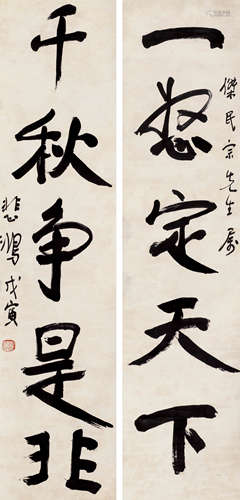 一怒定天下
傑民宗先生属
千秋争是非
悲鴻 戊寅